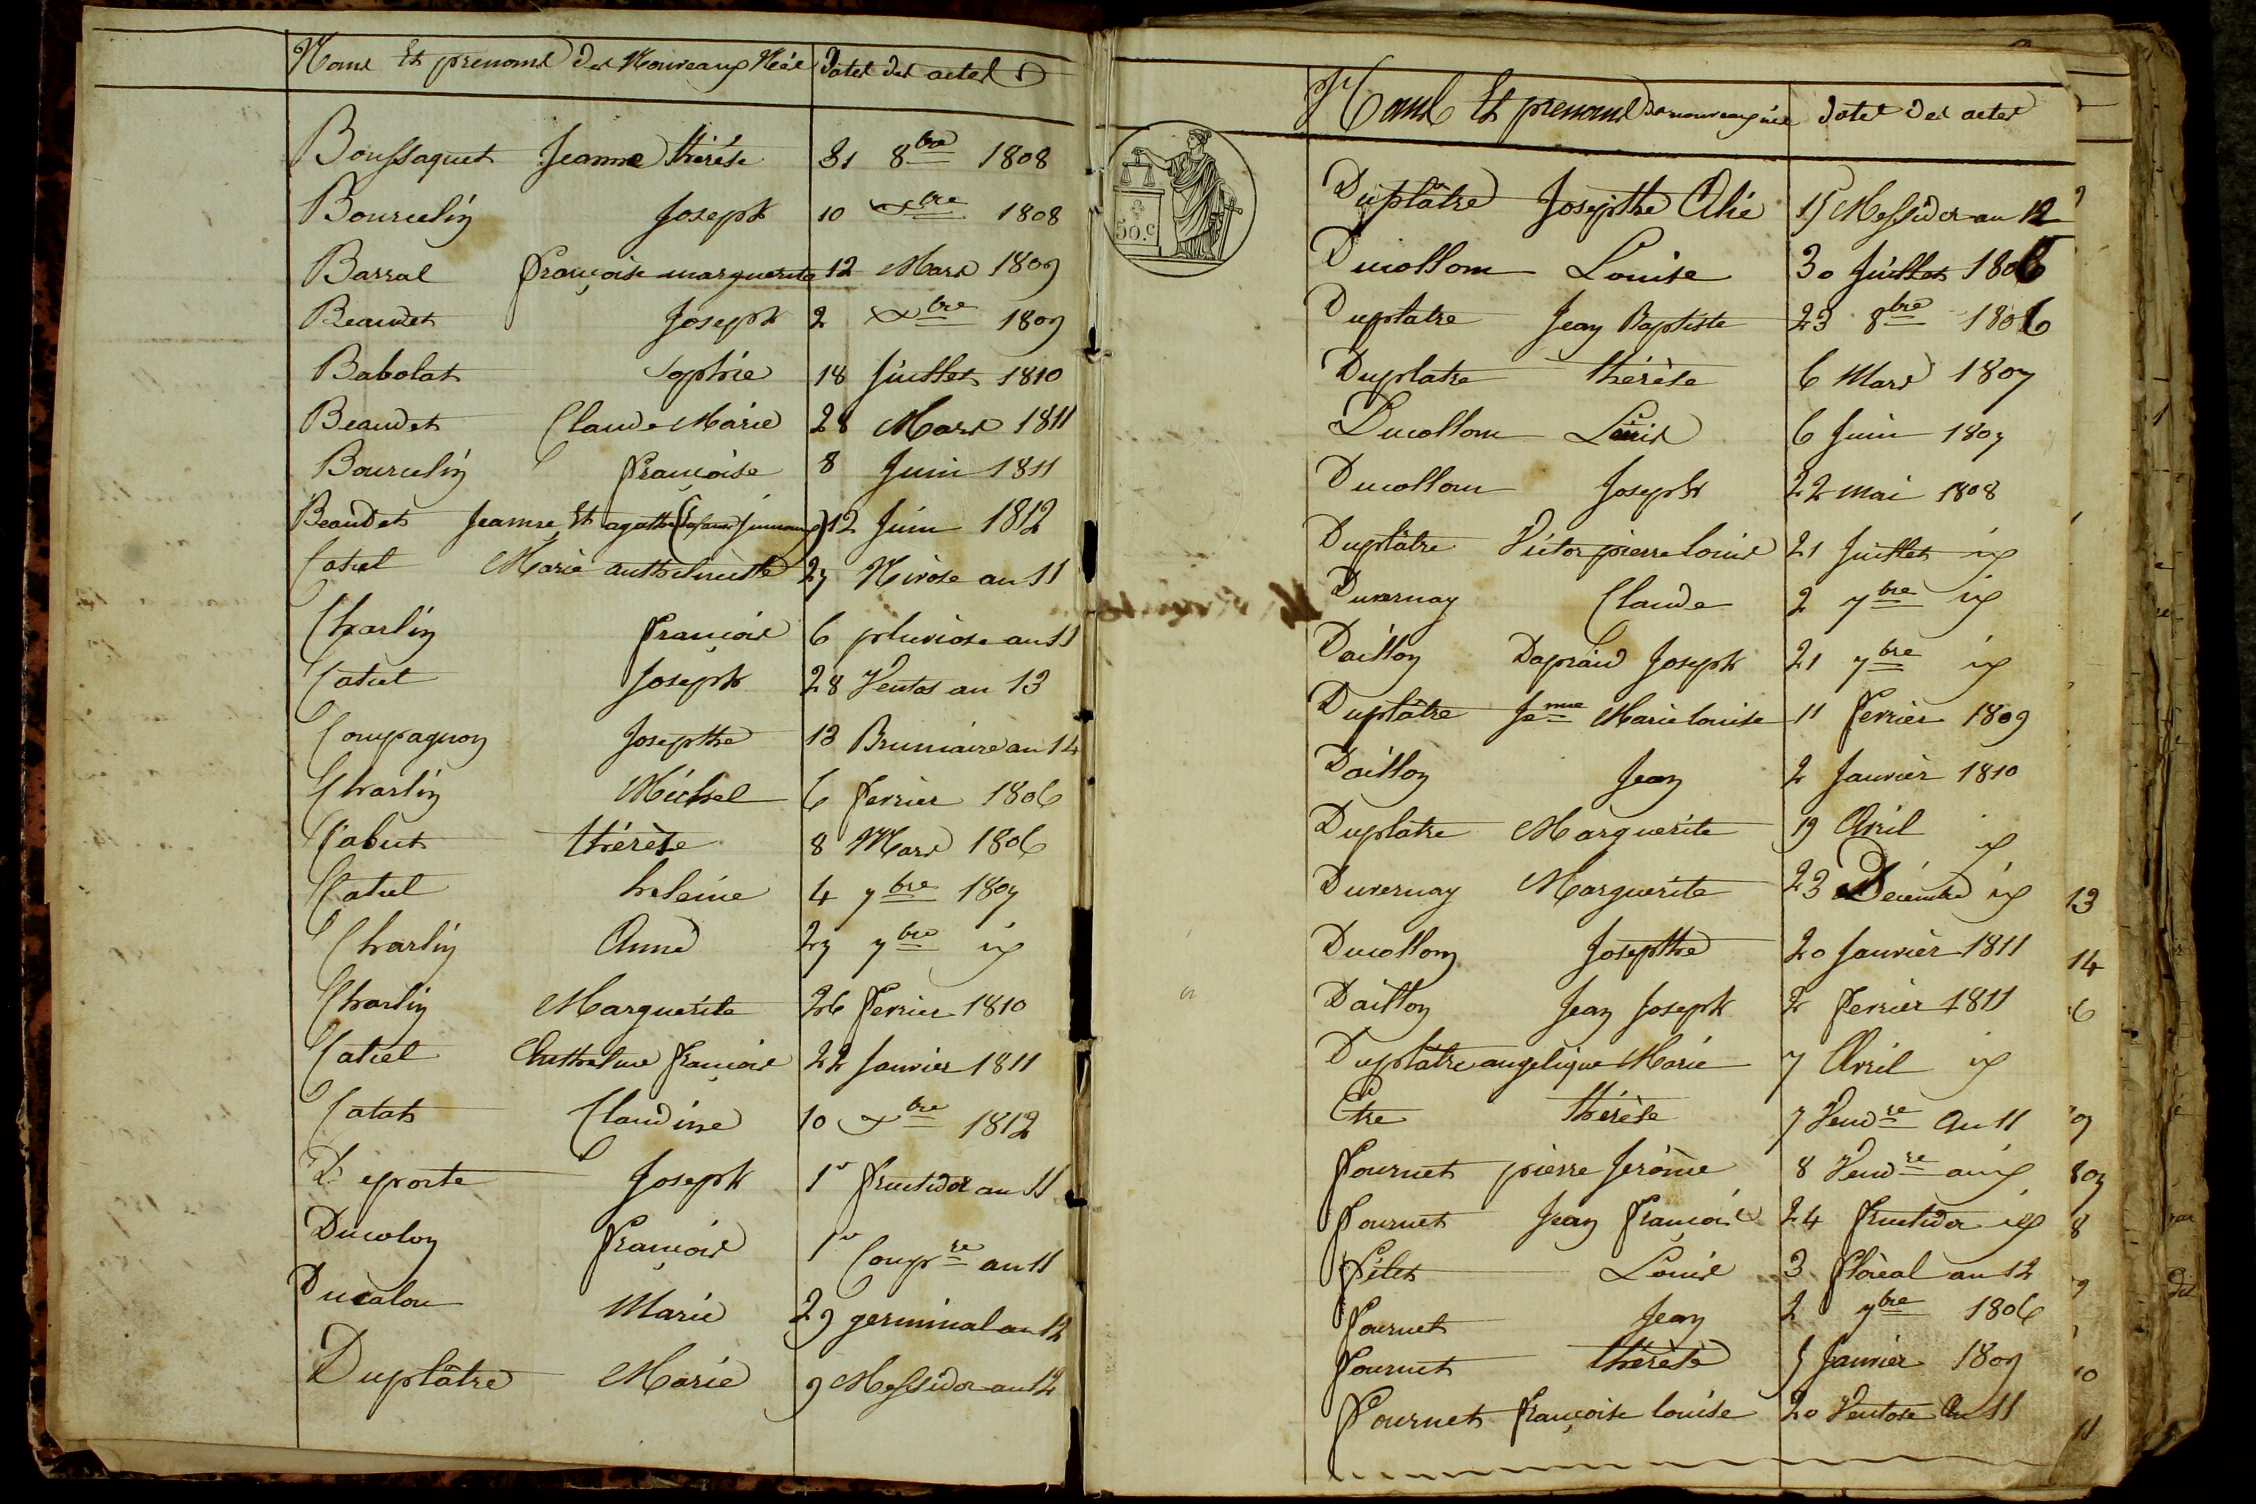 Noms Et prenoms des Nouveaux Nées Dates des actes
Boussaquet Jeanne thérése 31 8bre 1808
Bourcelin Joseph 10 xbre 1808
Barral françoise marguerite 12 Mars 1809
Beaudet Joseph 2 xbre 1809
Babolat Sophie 18 Juillet 1810
Beaudet Claude Marie 28 Mars 1811
Bourcelin françoise 8 Juin 1811
Beaudet Jeanne Et agathe 12 Juin 1812
Catiel Marie 27 Nivose an 11
Charlin françois 6 pluviose an 11
Catiel Joseph 28 Ventos an 13
Compagnon Josepthe 13 Brumaire an 14
Charlin Michel 6 fevrier 1806
Cabut thérèse 8 Mars 1806
Catiel heleine 4 7bre 1807
Charlin Anne 27 7bre id
Charlin Marguerite 26 fevrier 1810
Catiel Anthelme françois 22 Janvier 1811
Catat Claudine 10 xbre 1812
Deporte Joseph 1er fructidor an 11
Ducolon françois 1er Compre an 11
Ducalon Marie 29 germinal an 12
Duplâtre Marie 9 Messidor an 12
Noms Et prenoms Des nouveaux née dates des actes
50.C
Duplâtre Josepthe 15 Messidor an 12
Ducollom Louise 30 Juillet 1806
Duplatre Jean Baptiste 23 8bre 1806
Duplatre thérèse 6 Mars 1807
Ducollom Louis 6 Juin 1807
Ducollom Joseph 22 mai 1808
Duplâtre Victor pierre louis 21 Juillet id
Duvernay Claude 2 7bre id
Daillon Joseph 21 7bre id
Duplâtre Jenne Marie louise 11 fevrier 1809
Daillon Jean 2 Janvier 1810
Duplatre Marguerite 19 Avril id
Duvernay Marguerite 23 Décembre id
Ducollom Josepthe 20 Janvier 1811
Daillon Jean Joseph 2 fevrier 1811
Duplâtre angelique Marie 7 Avril id
Etre thérèse 7 Vendre an 11
fournet pierre Jerôme 8 Vendre an id
fournet Jean françois 24 fructidor id
félet Louis 3 floreal an 12
fournet Jean 2 7bre 1806
fournet thérèse 5 Janvier 1809
fournet françoise louise 20 Ventose an 11
13
14
6
09
807
8
9
10
11